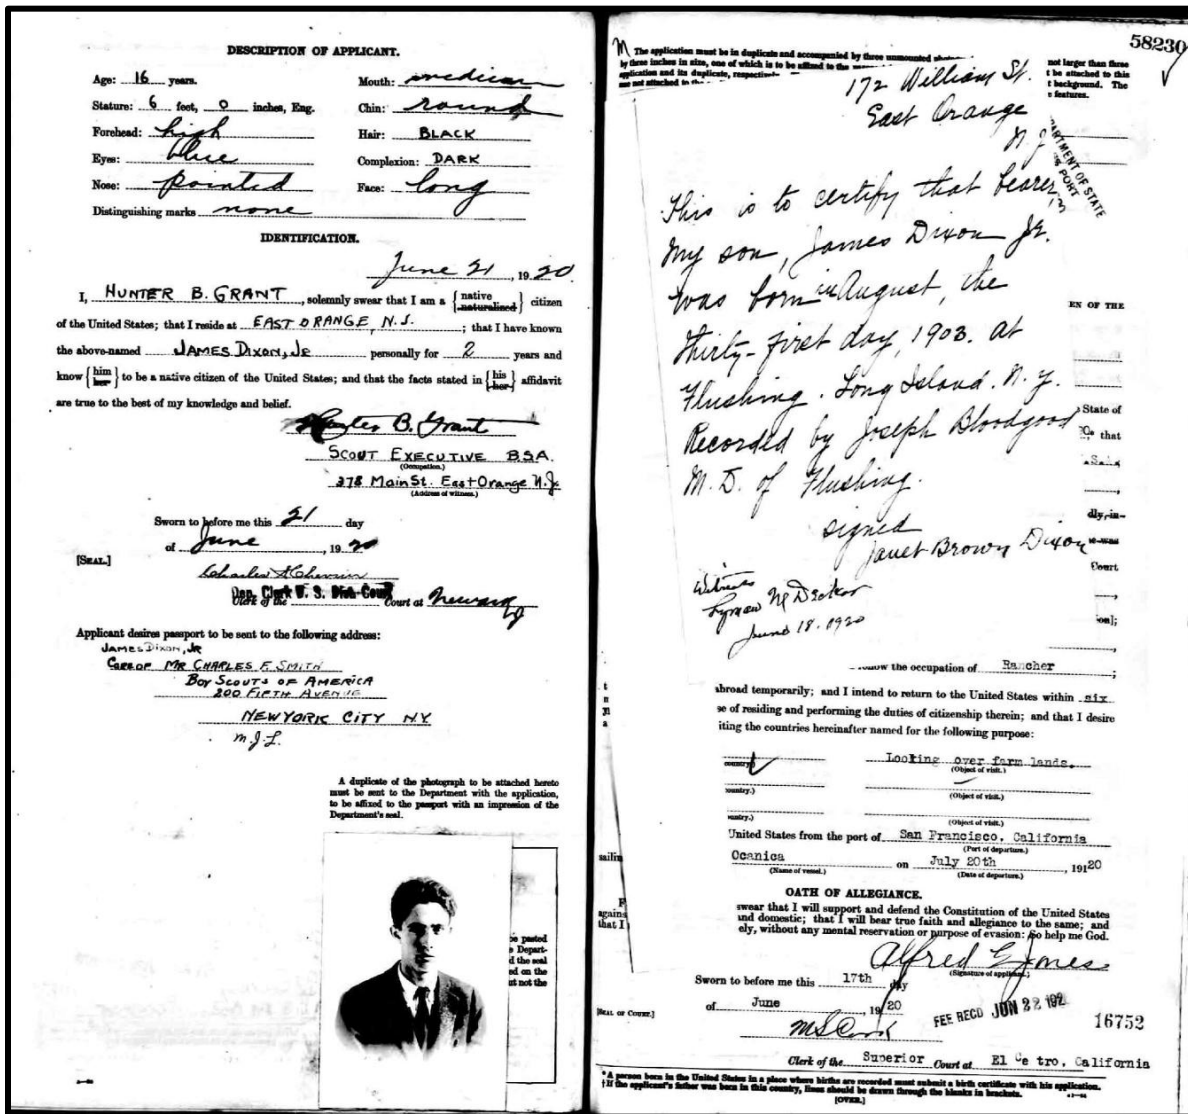 DESCRIPTION OF APPLICANT.
Age: 16 years.
Mouth: medium
Stature: 6 feet, 0 inches, Eng.
Chin: round
Forehead: high
Hair: BLACK
Eyes: blue
Complexion: DARK
Nose: pointed
Face: long
Distinguishing marks none
IDENTIFICATION.
June 21, 1920
I, HUNTER B. GRANT, solemnly swear that I am a {native naturalized} citizen
of the United States; that I reside at EAST ORANGE, N.J.; that I have known
the above-named JAMES DIXON, JR personally for 2 years and
know {him her} to be a native citizen of the United States; and that the facts stated in {his her} affidavit
are true to the best of my knowledge and belief.
Hunter B. Grant
SCOUT EXECUTIVE B.S.A.
(Occupation.)
378 Main St. East Orange N.J.
(Address of witness.)
Sworn to before me this 21 day
of June, 1920
[SEAL.]
Dep. Clerk U. S. Dist. Court
Clerk of the Court at Newark
Applicant desires passport to be sent to the following address:
JAMES DIXON, JR
CARE OF MR CHARLES F. SMITH
BOY SCOUTS OF AMERICA
200 FIFTH AVENUE
NEW YORK CITY N.Y.
m.J.L.
A duplicate of the photograph to be attached hereto
must be sent to the Department with the application,
to be affixed to the passport with an impression of the
Department's seal.
be pasted
e Depart-
d the seal
ed on the
ut not the
58230
M The application must be in duplicate and accompanied by three unmounted
not larger than three
by three inches in size, one of which is to be affixed to the
t be attached to this
application and its duplicate, respectively
t background. The
features.
172 William St.
East Orange
N.J.
DEPARTMENT OF STATE
PASSPORT
This is to certify that bearer,
my son, James Dixon Jr.
was born in August, the
thirty-first day, 1903. at
Flushing. Long Island. N.Y.
Recorded by Joseph Bloodgood
M.D. of Flushing.
signed
Janet Brown Dixon
Witness
Lyman N Decker
June 18. 1920
EN OF THE
State of
that
dly, in-
Court
ion];
follow the occupation of Rancher;
abroad temporarily; and I intend to return to the United States within six
se of residing and performing the duties of citizenship therein; and that I desire
iting the countries hereinafter named for the following purpose:
country.) Looking over farm lands.
(Object of visit.)
ountry.)
(Object of visit.)
untry.)
(Object of visit.)
United States from the port of San Francisco, California
(Port of departure.)
sailin
Ocanica on July 20th, 19120
(Name of vessel.) (Date of departure.)
OATH OF ALLEGIANCE.
swear that I will support and defend the Constitution of the United States
agains
und domestic; that I will bear true faith and allegiance to the same; and
that I
ely, without any mental reservation or purpose of evasion: So help me God.
Alfred E Jones
(Signature of applicant.)
Sworn to before me this 17th day
of June 1920
FEE RECD JUN 22 192
[SEAL OF COURT.]
16752
Clerk of the Superior Court at El Ce tro, California
*A person born in the United States in a place where births are recorded must submit a birth certificate with his application.
†If the applicant's father was born in this country, lines should be drawn through the blanks in brackets.
[OVER.]